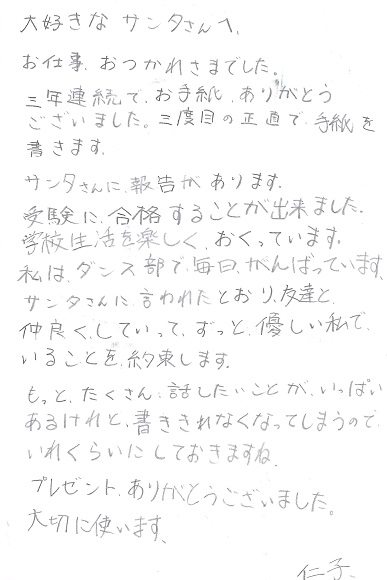 大好きなサンタさんへ、
お仕事、おつかれさまでした。
三年連続で、お手紙、ありがとう
ございました。三度目の正直で、手紙を
書きます。
サンタさんに、報告があります。
受験に、合格することが出来ました。
学校生活を楽しく、おくっています。
私は、ダンス部で、毎日、がんばっています。
サンタさんに、言われたとおり、友達と、
仲良く、していって、ずっと、優しい私で、
いることを、約束します。
もっと、たくさん、話したいことが、いっぱい
あるけれど、書ききれなくなってしまうので、
いれくらいにしておきますね。
プレゼント、ありがとうございました。
大切に使います、
仁子、